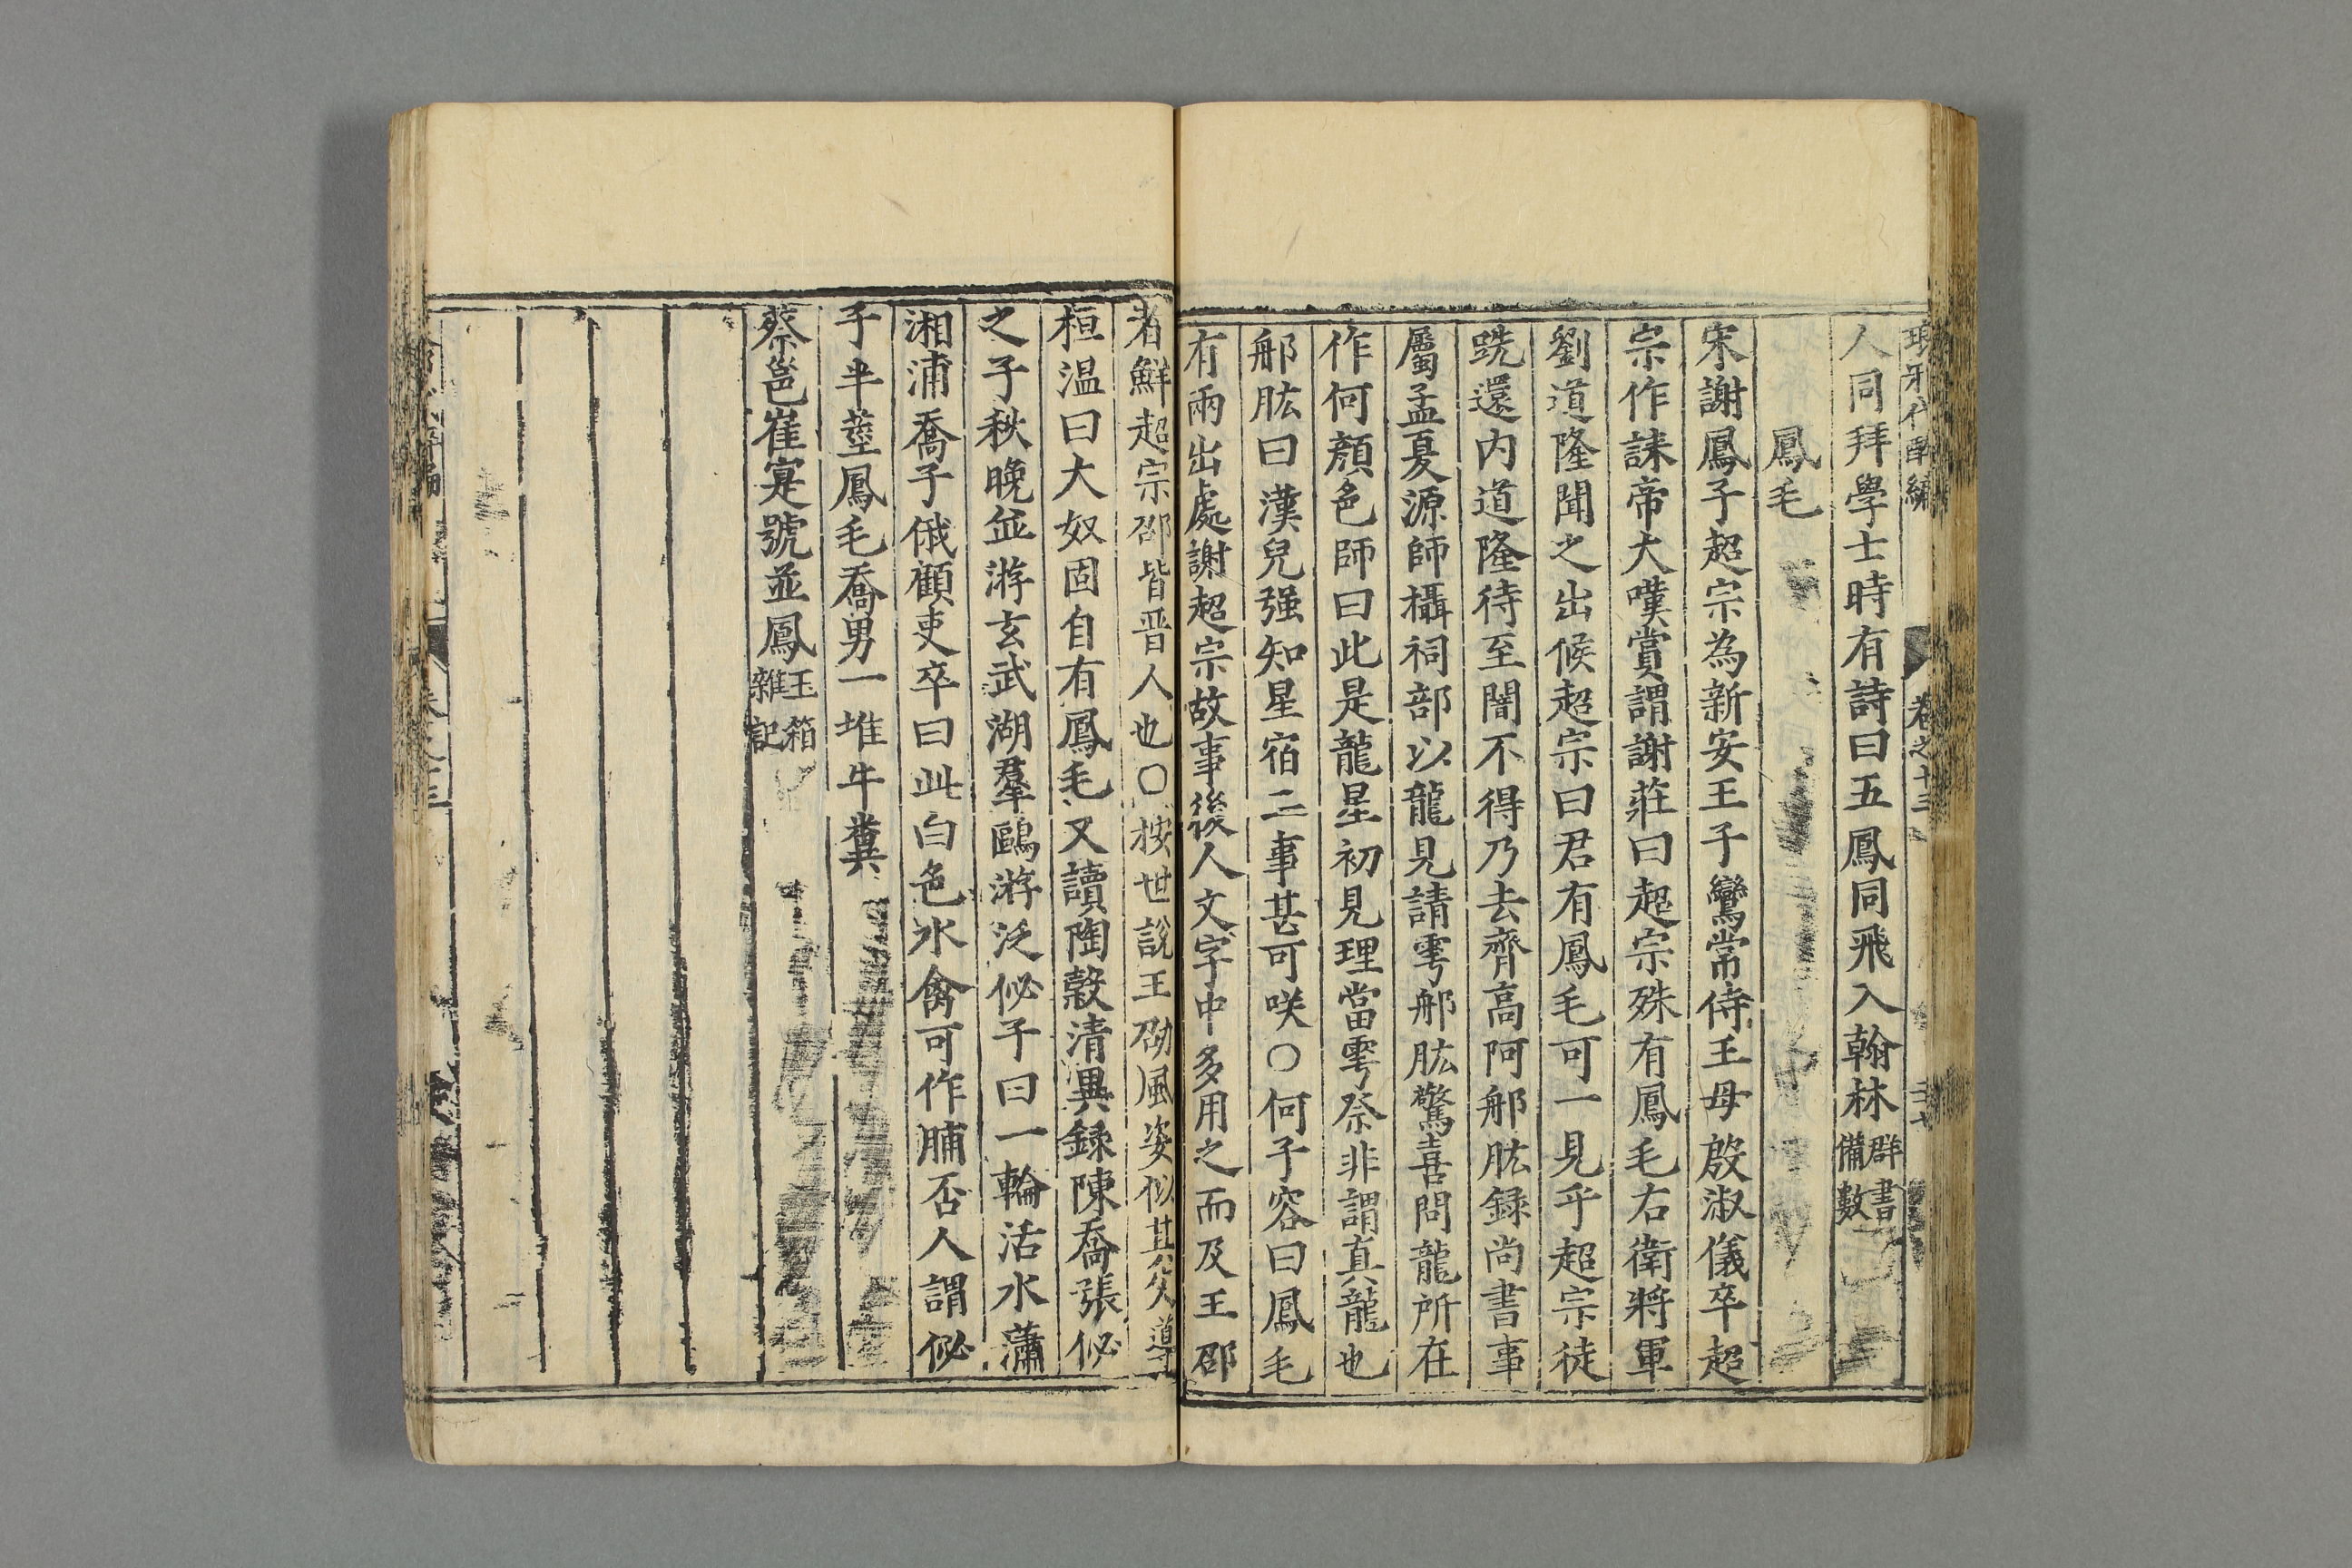 卷之十三
人同拜學士時有詩曰五鳳同飛入翰林群書備數
鳳毛
宋謝鳳子超宗為新安王子鸞常侍王母殷淑儀卒超
宗作誄帝大嘆賞謂謝莊曰超宗殊有鳳毛右衛將軍
劉道隆聞之出候超宗曰君有鳳毛可一見乎超宗徒
跣還内道隆待至闇不得乃去齊高阿那肱録尚書事
屬孟夏源師攝祠部以龍見請雩那肱驚喜問龍所在
作何顏色師曰此是龍星初見理當雩祭非謂真龍也
那肱曰漢兒强知星宿二事甚可咲○何子容曰鳳毛
有兩出處謝超宗故事後人文字中多用之而及王邵
者鮮超宗邵皆晋人也○按世說王劭風姿似其父導
桓温曰大奴固自有鳳毛又讀陶穀清異録陳喬張佖
之子秋晚並游玄武湖羣鷗游泛佖子曰一輪活水瀟
湘浦喬子俄顧吏卒曰此白色水禽可作脯否人謂佖
子半莖鳳毛喬男一堆牛糞
蔡邕崔寔號並鳳玉箱雜記